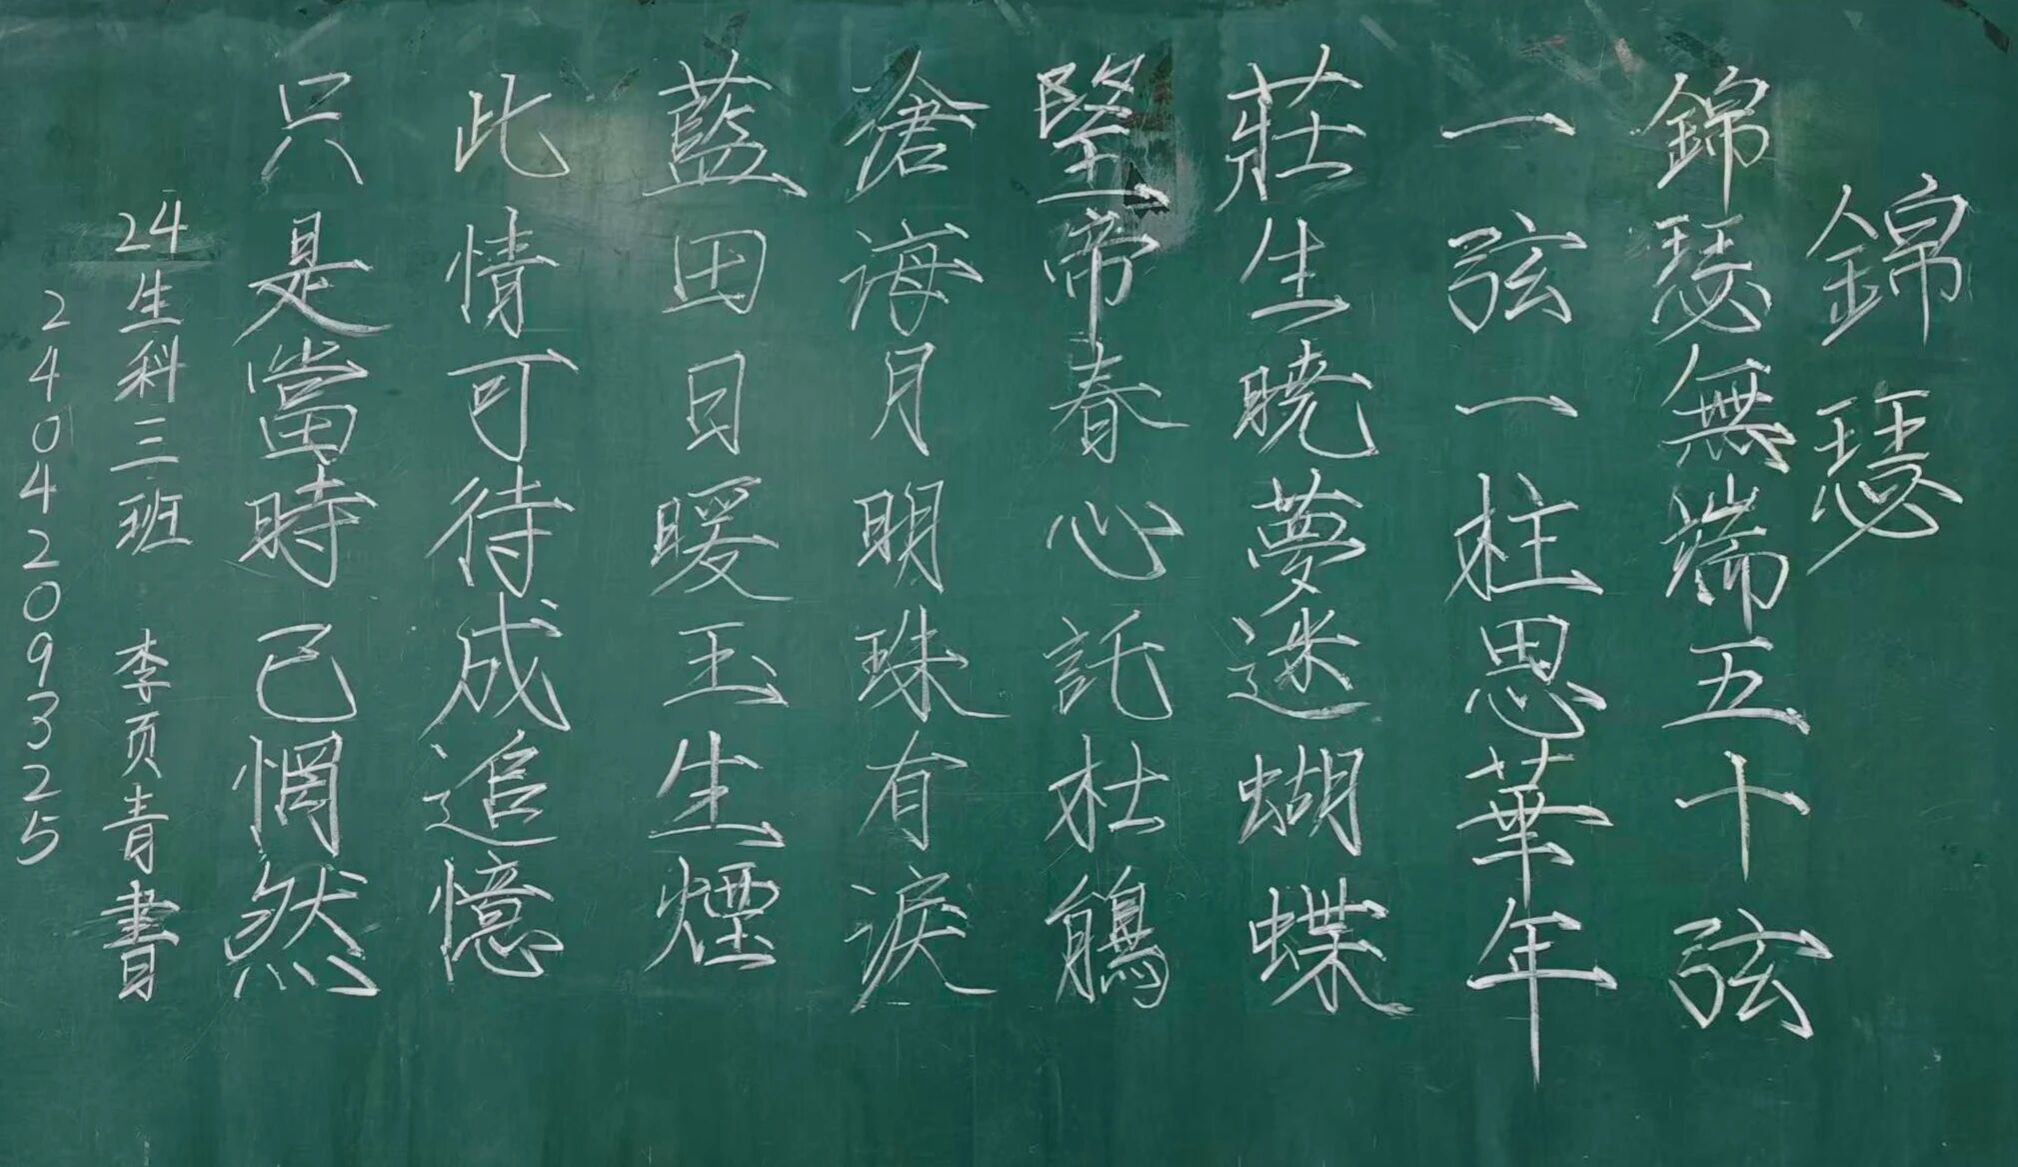 錦瑟
錦瑟無端五十弦
一弦一柱思華年
莊生曉夢迷蝴蝶
朢帝春心託杜鵑
滄海月明珠有淚
藍田日暖玉生煙
此情可待成追憶
只是當時已惘然
24生科三班 李页青書
2404209325